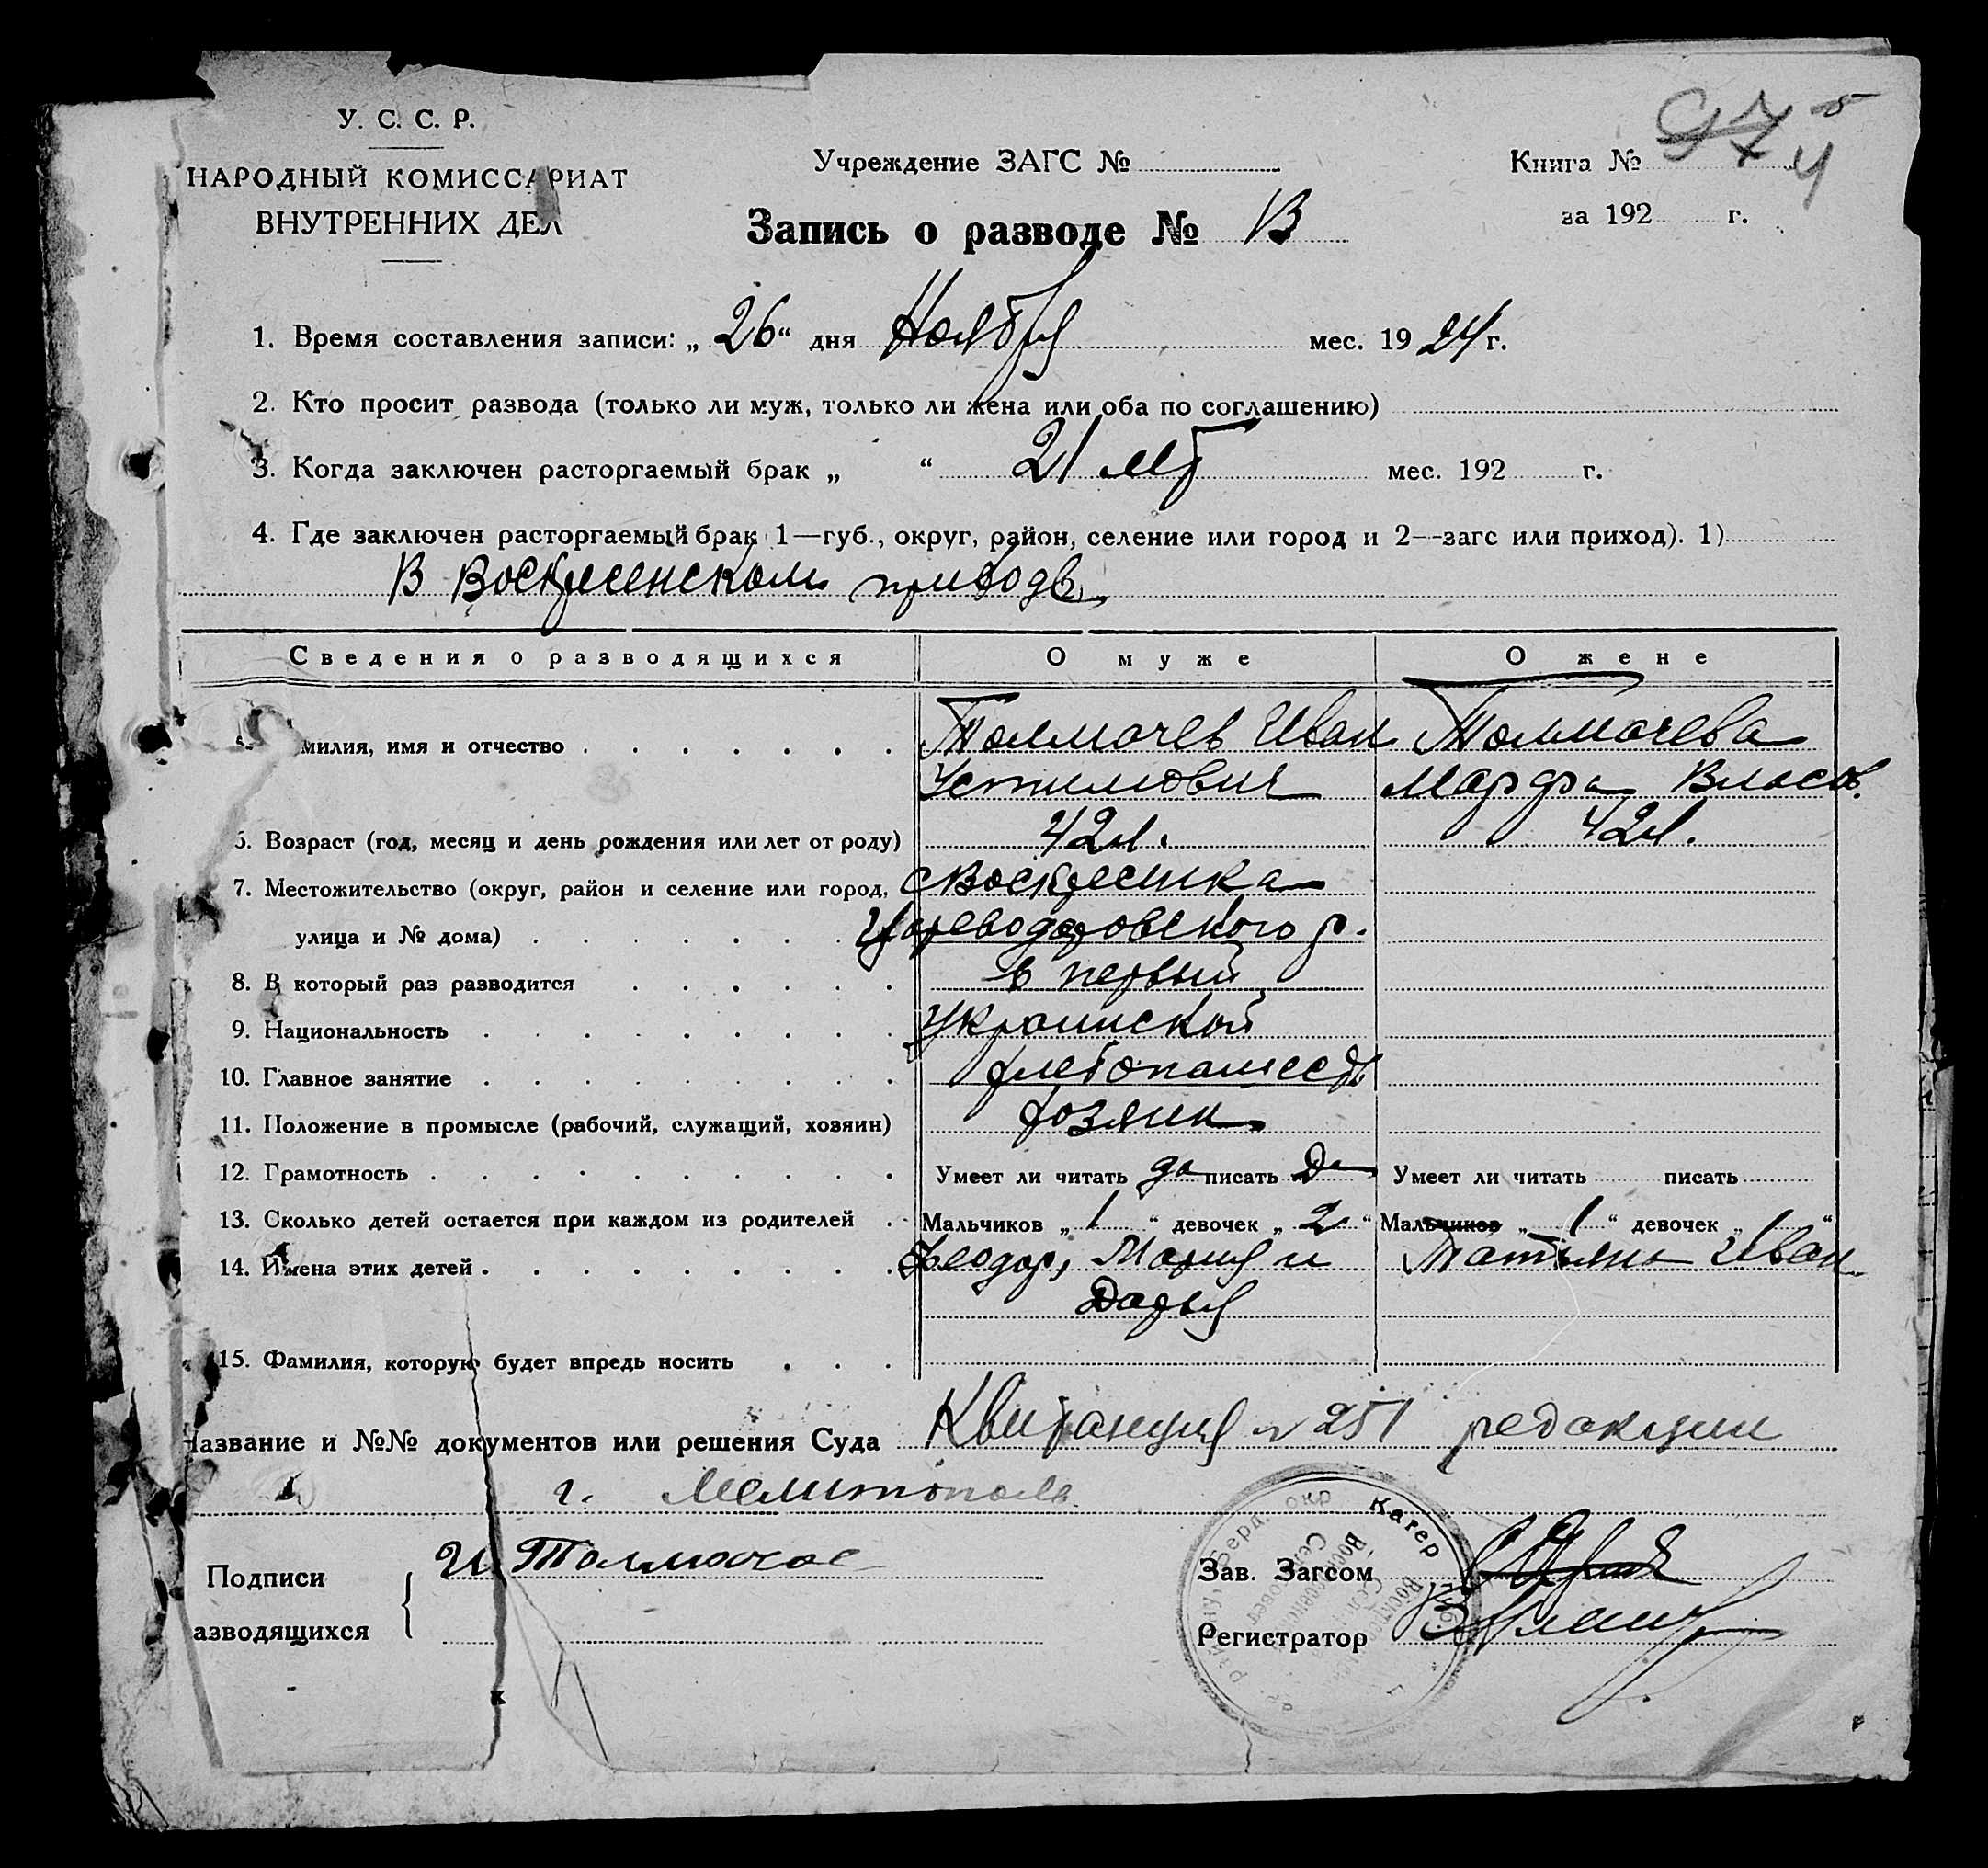 У. С. С. Р.
НАРОДНЫЙ КОМИССАРИАТ
ВНУТРЕННИХ ДЕЛ
Учреждение ЗАГС №
Книга № 97 4
за 192 г.
Запись о разводе № 13
1. Время составления записи: „ 26 “ дня Ноября мес. 1924 г.
2. Кто просит развода (только ли муж, только ли жена или оба по соглашению)
3. Когда заключен расторгаемый брак „ “ 21 мес. 192 г.
4. Где заключен расторгаемый брак 1—губ., округ, район, селение или город и 2—загс или приход). 1)
В Воскресенском приходе
Сведения о разводящихся О муже О жене
милия, имя и отчество Толмочев Иван Толмочева
Устимович Марфа Власов.
6. Возраст (год, месяц и день рождения или лет от роду) 42 л. 42 л.
7. Местожительство (округ, район и селение или город, с Воскресенка
улица и № дома) Цареводаровского р.
8. В который раз разводится в первый
9. Национальность Украинской
10. Главное занятие
11. Положение в промысле (рабочий, служащий, хозяин) хозяин
12. Грамотность Умеет ли читать да писать Да Умеет ли читать писать
13. Сколько детей остается при каждом из родителей Мальчиков „ 1 “ девочек „ 2 “ Мальчиков „ 1 “ девочек „ 1 “
14. Имена этих детей Феодор, Мария и Татьяна Иван
Дарья
15. Фамилия, которую будет впредь носить
Название и №№ документов или решения Суда Квитанция № 251 редакции
г. Мелитополя
Подписи И Толмочов
азводящихся
Зав. Загсом
Регистратор